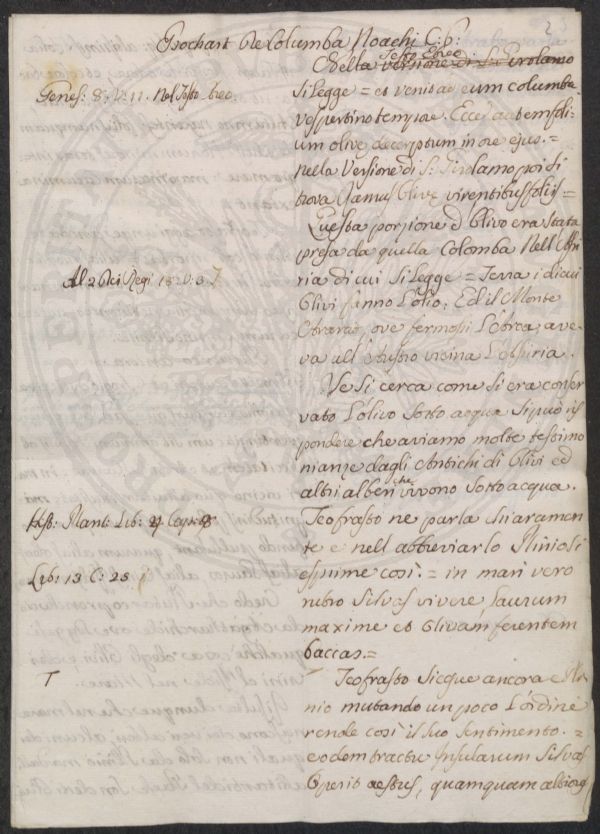 2
Bochart De Columba Noachi C. 6:
Testo Ebreo
Nella versione di S. Girolamo
Genes: 8. V. 11. Nel Testo Ebreo.
si legge = et venit ad eum columba
vespertino tempore. Ecce autem foli-
um olive decerptum in ore ejus. =
nella Versione di S. Girolamo poi si
trova Ramus Olive virentibus foliis =
Questa porzione d'Olivo era stata
presa da quella Colomba nell'Assi
Al 2 dei Regi 18. V. 3
ria di cui si legge = Terra i di cui
Olivi fanno l'olio; Ed il Monte
Ararat, ove fermossi l'Arca, ave-
va all'Austro vicina l'Assiria.
Se si cerca come si era conser
vato l'olivo sotto acqua si può ris
pondere che aviamo molte testimo
nianze dagli Antichi di Olivi ed
altri alberi che vivono sotto acqua.
Hist: Plant: Lib: 4 Cap: 8
Teofrasto ne parla chiaramen
te e nell'abbreviarlo Plinio si
Lib: 13 C: 25
esprime così. = in mari vero
rubro silvas vivere, laurum
maxime et Olivam ferentem
baccas. =
Teofrasto siegue ancora e Pli-
nio mutando un poco l'ordine
rende così il suo sentimento. =
eodem tractu insularum silvas
operit aestus, quamquam altiores